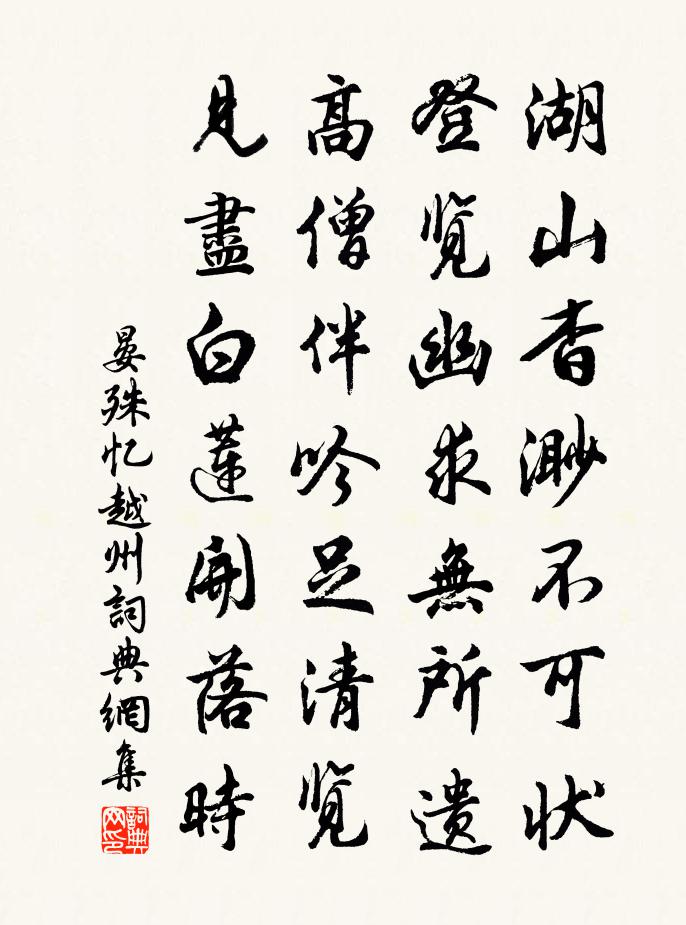 湖山杳渺不可状
登览幽求無所遗
高僧伴吟足清览
見盡白蓮開落時
晏殊忆越州詞典網集
詞典
网印